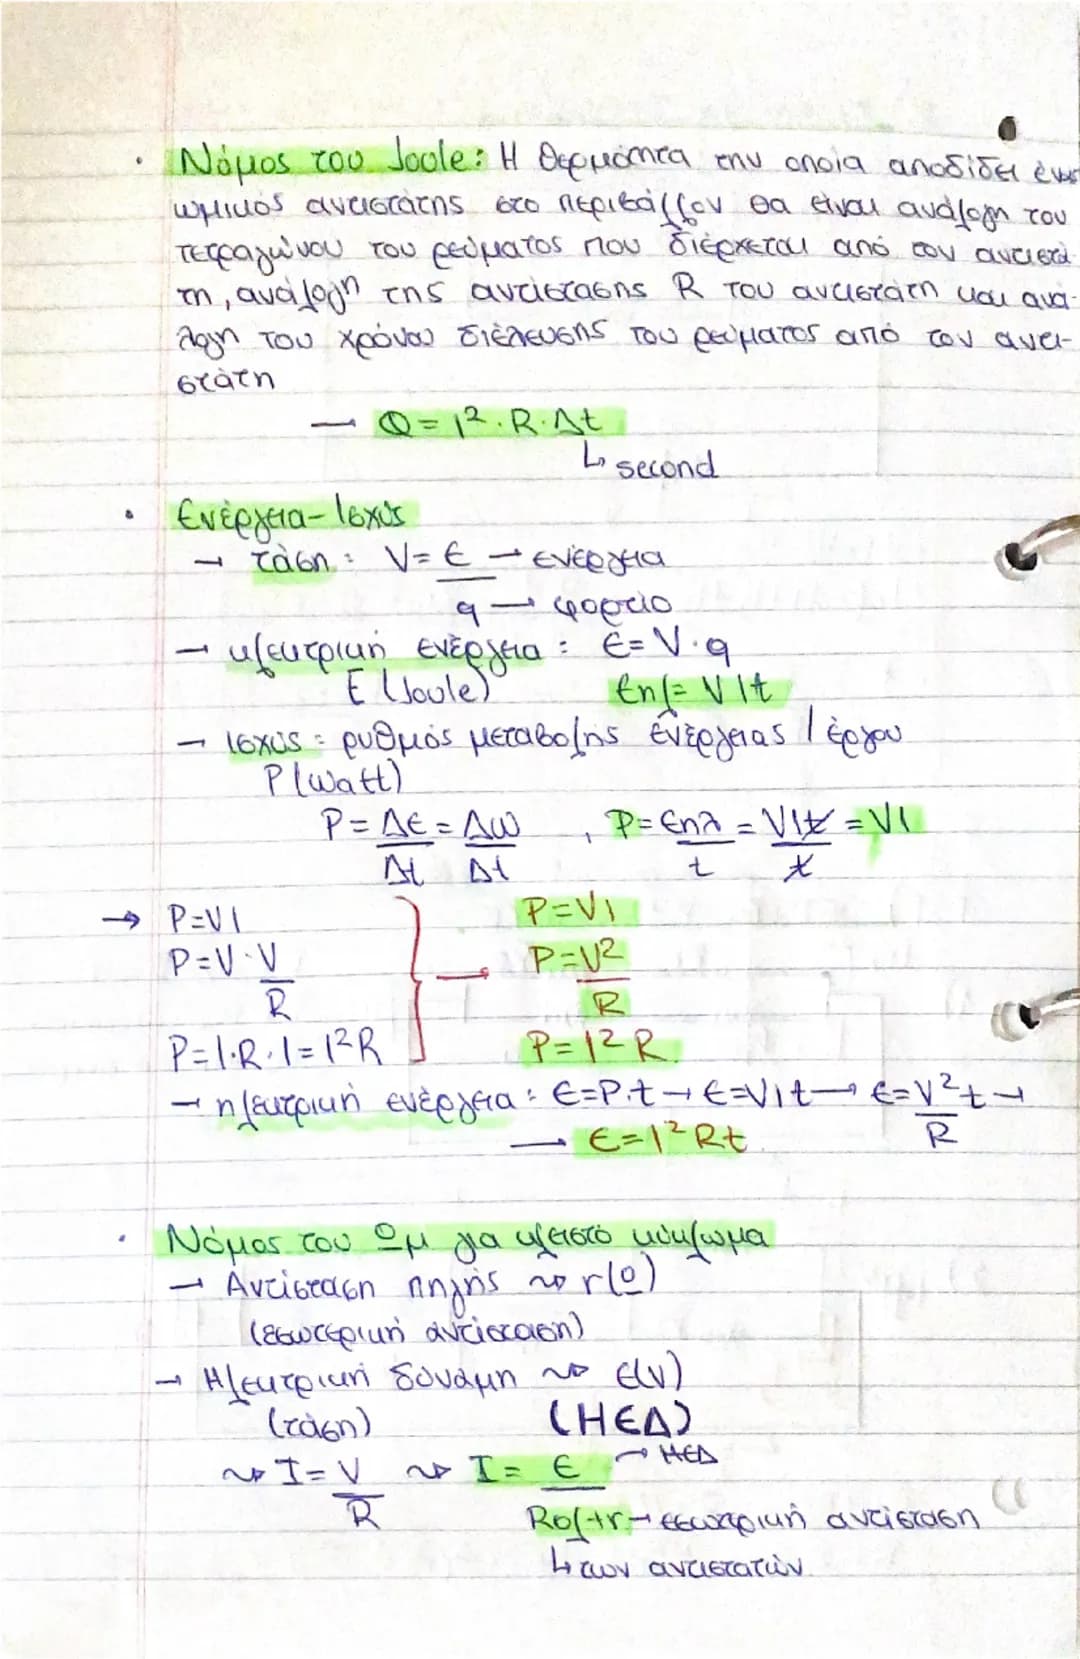 • Νόμος του Joule: Η θερμότητα την οποία αποδίδει ένας
ωμικός αντιστάτης στο περιβάλλον θα είναι ανάλογη του
τετραγώνου του ρεύματος που διέρχεται από τον αντιστά-
τη, ανάλογη της αντίστασης R του αντιστάτη και ανά-
λογη του χρόνου διέλευσης του ρεύματος από τον αντι-
στάτη
→ Q = I².R.Δt
↳ second
• Ενέργεια-Ισχύς
→ τάση: V = E → ενέργεια
q → φορτίο
→ ηλεκτρική ενέργεια: E = V.q
E (Joule) Eηλ = VIt
→ ισχύς: ρυθμός μεταβολής ενέργειας / έργου
P (watt)
P = ΔE = ΔW , P = Eηλ = VIt = VI
Δt Δt t t
→ P=VI P=VI
P=V.V P=V²
R R
P=I.R.I=I²R P=I²R
→ ηλεκτρική ενέργεια: E=P.t → E=VIt → E=V²t →
R
→ E=I²Rt
• Νόμος του Ωμ για κλειστό κύκλωμα
→ Αντίσταση πηγής ⇝ r(Ω)
(εσωτερική αντίσταση)
→ Ηλεκτρική δύναμη ⇝ E(V)
(τάση) (ΗΕΔ)
⇝ I = V ⇝ I = E → ΗΕΔ
R
Rολ+r → εσωτερική αντίσταση
↳ των αντιστατών